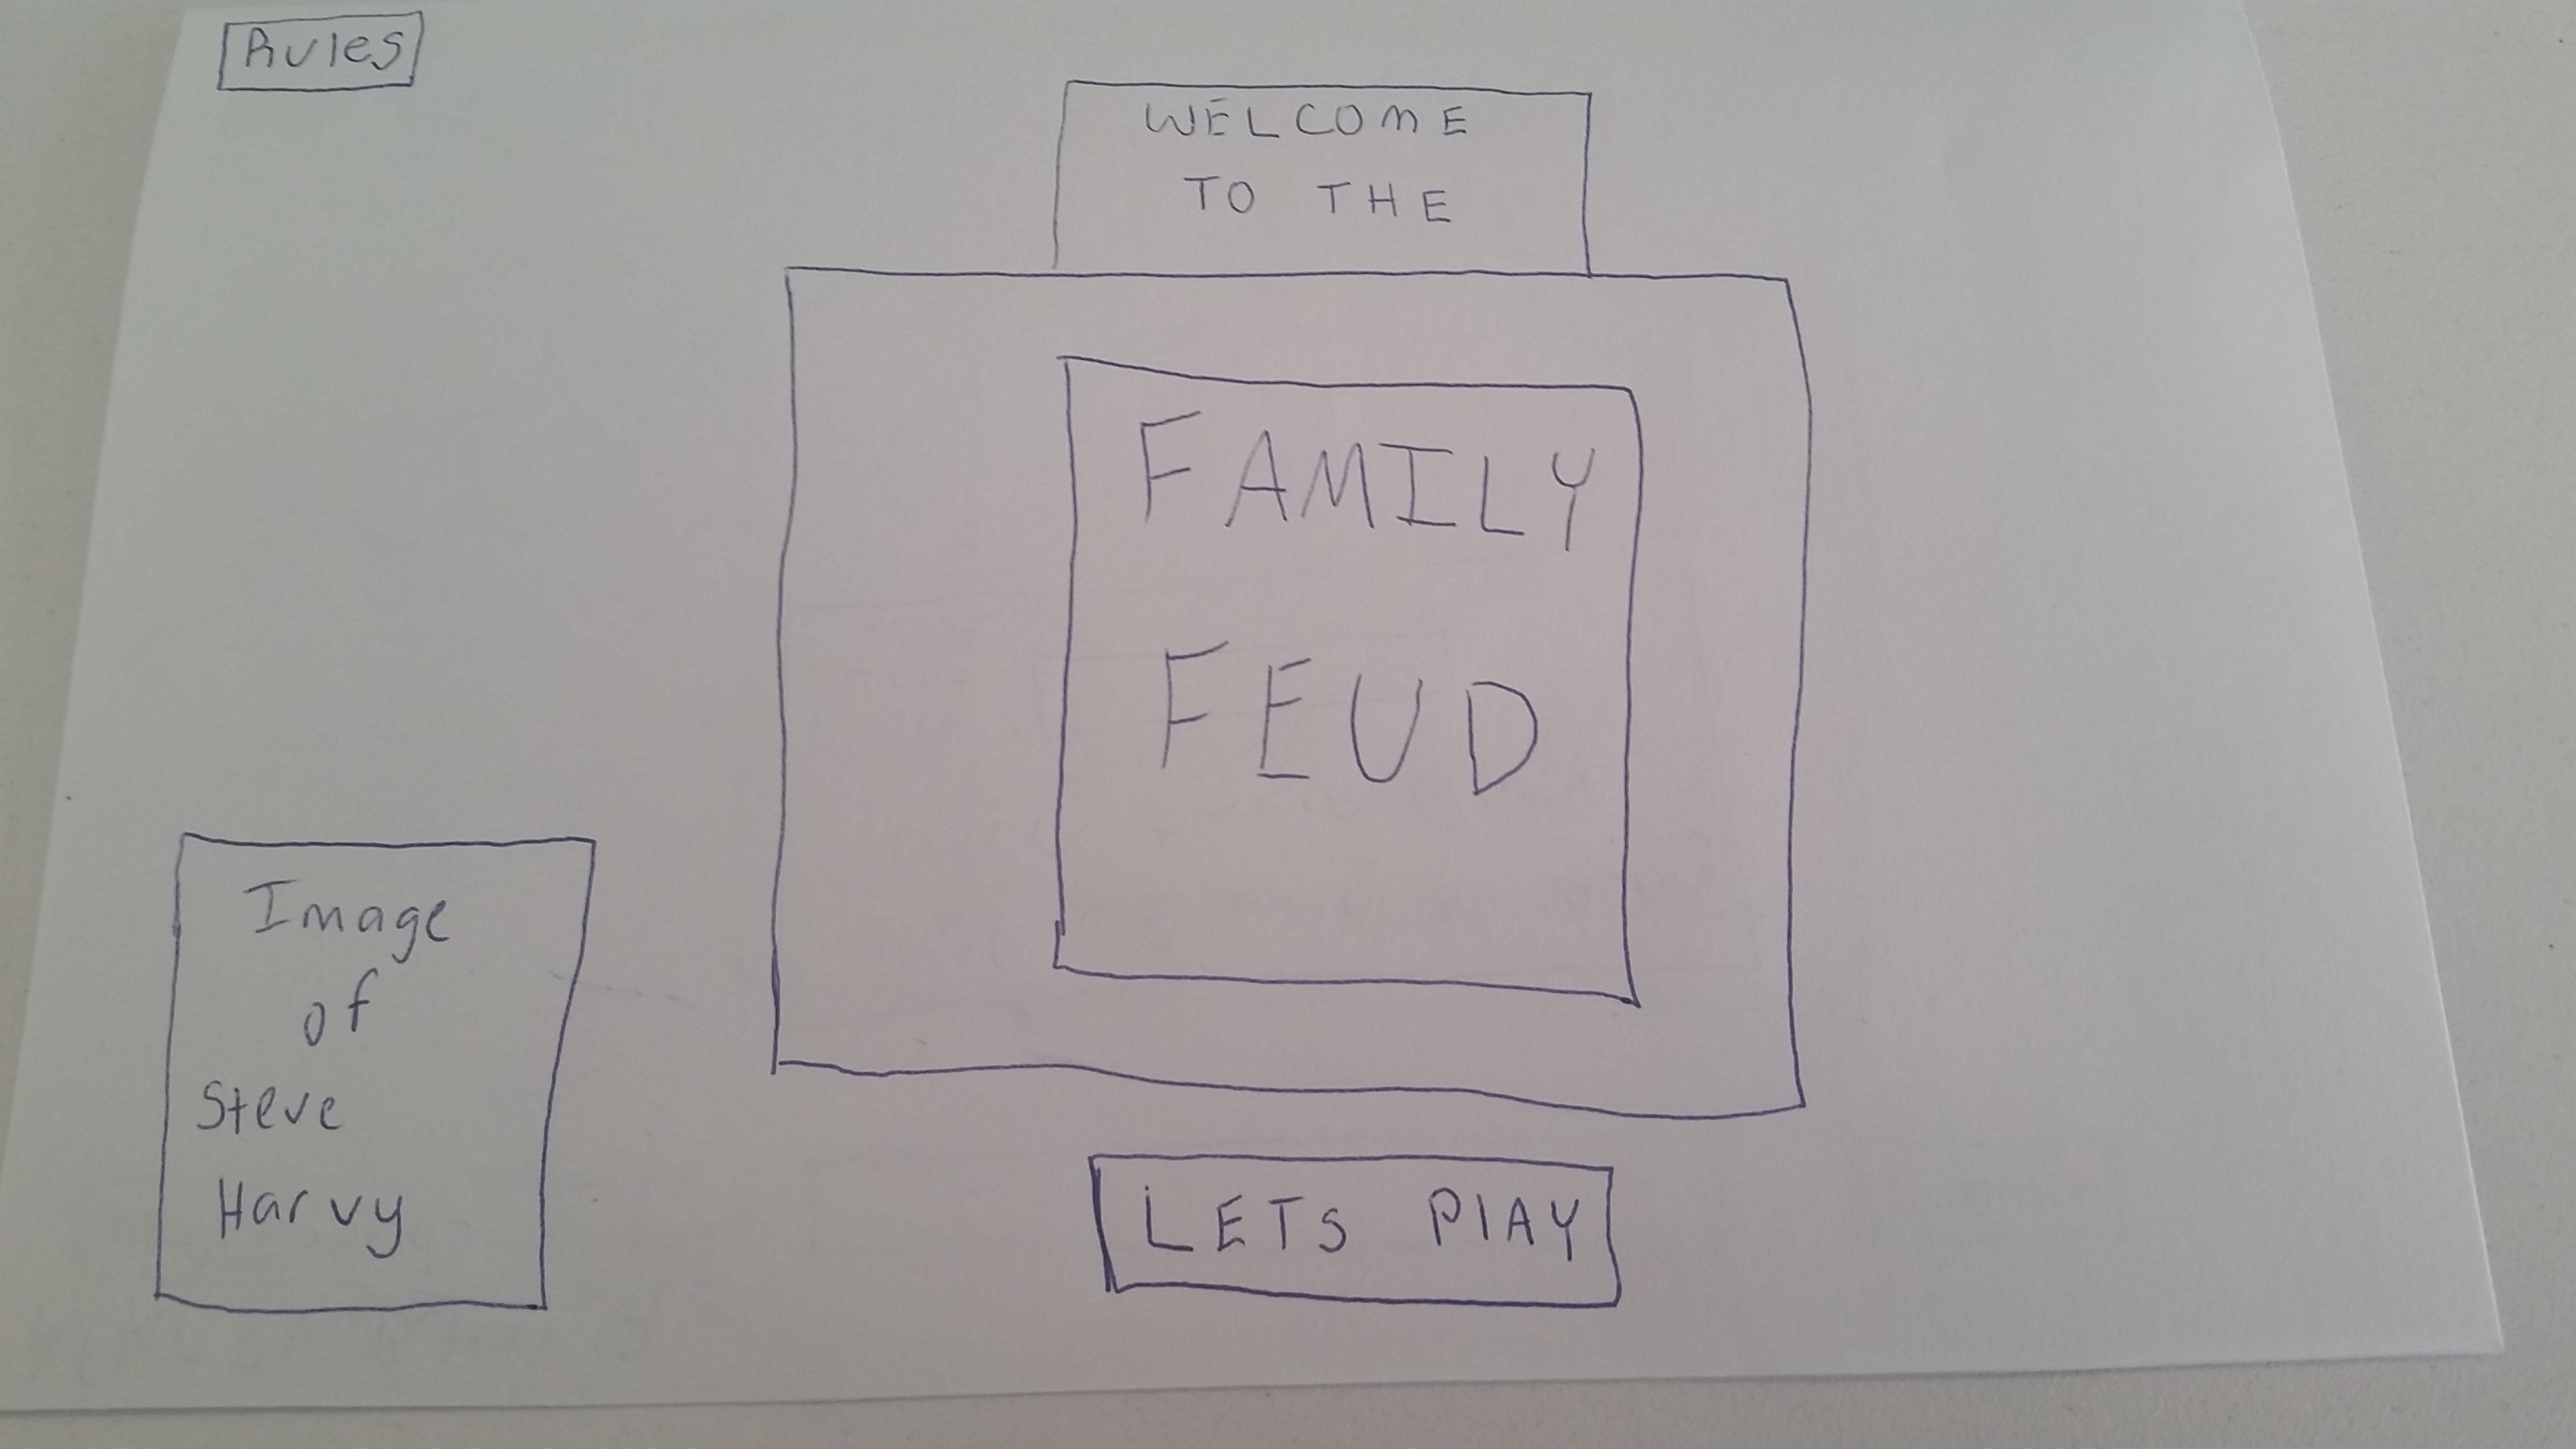 Rules
WELCOME
TO THE
FAMILY
FEUD
Image
of
Steve
Harvy
LETS PLAY